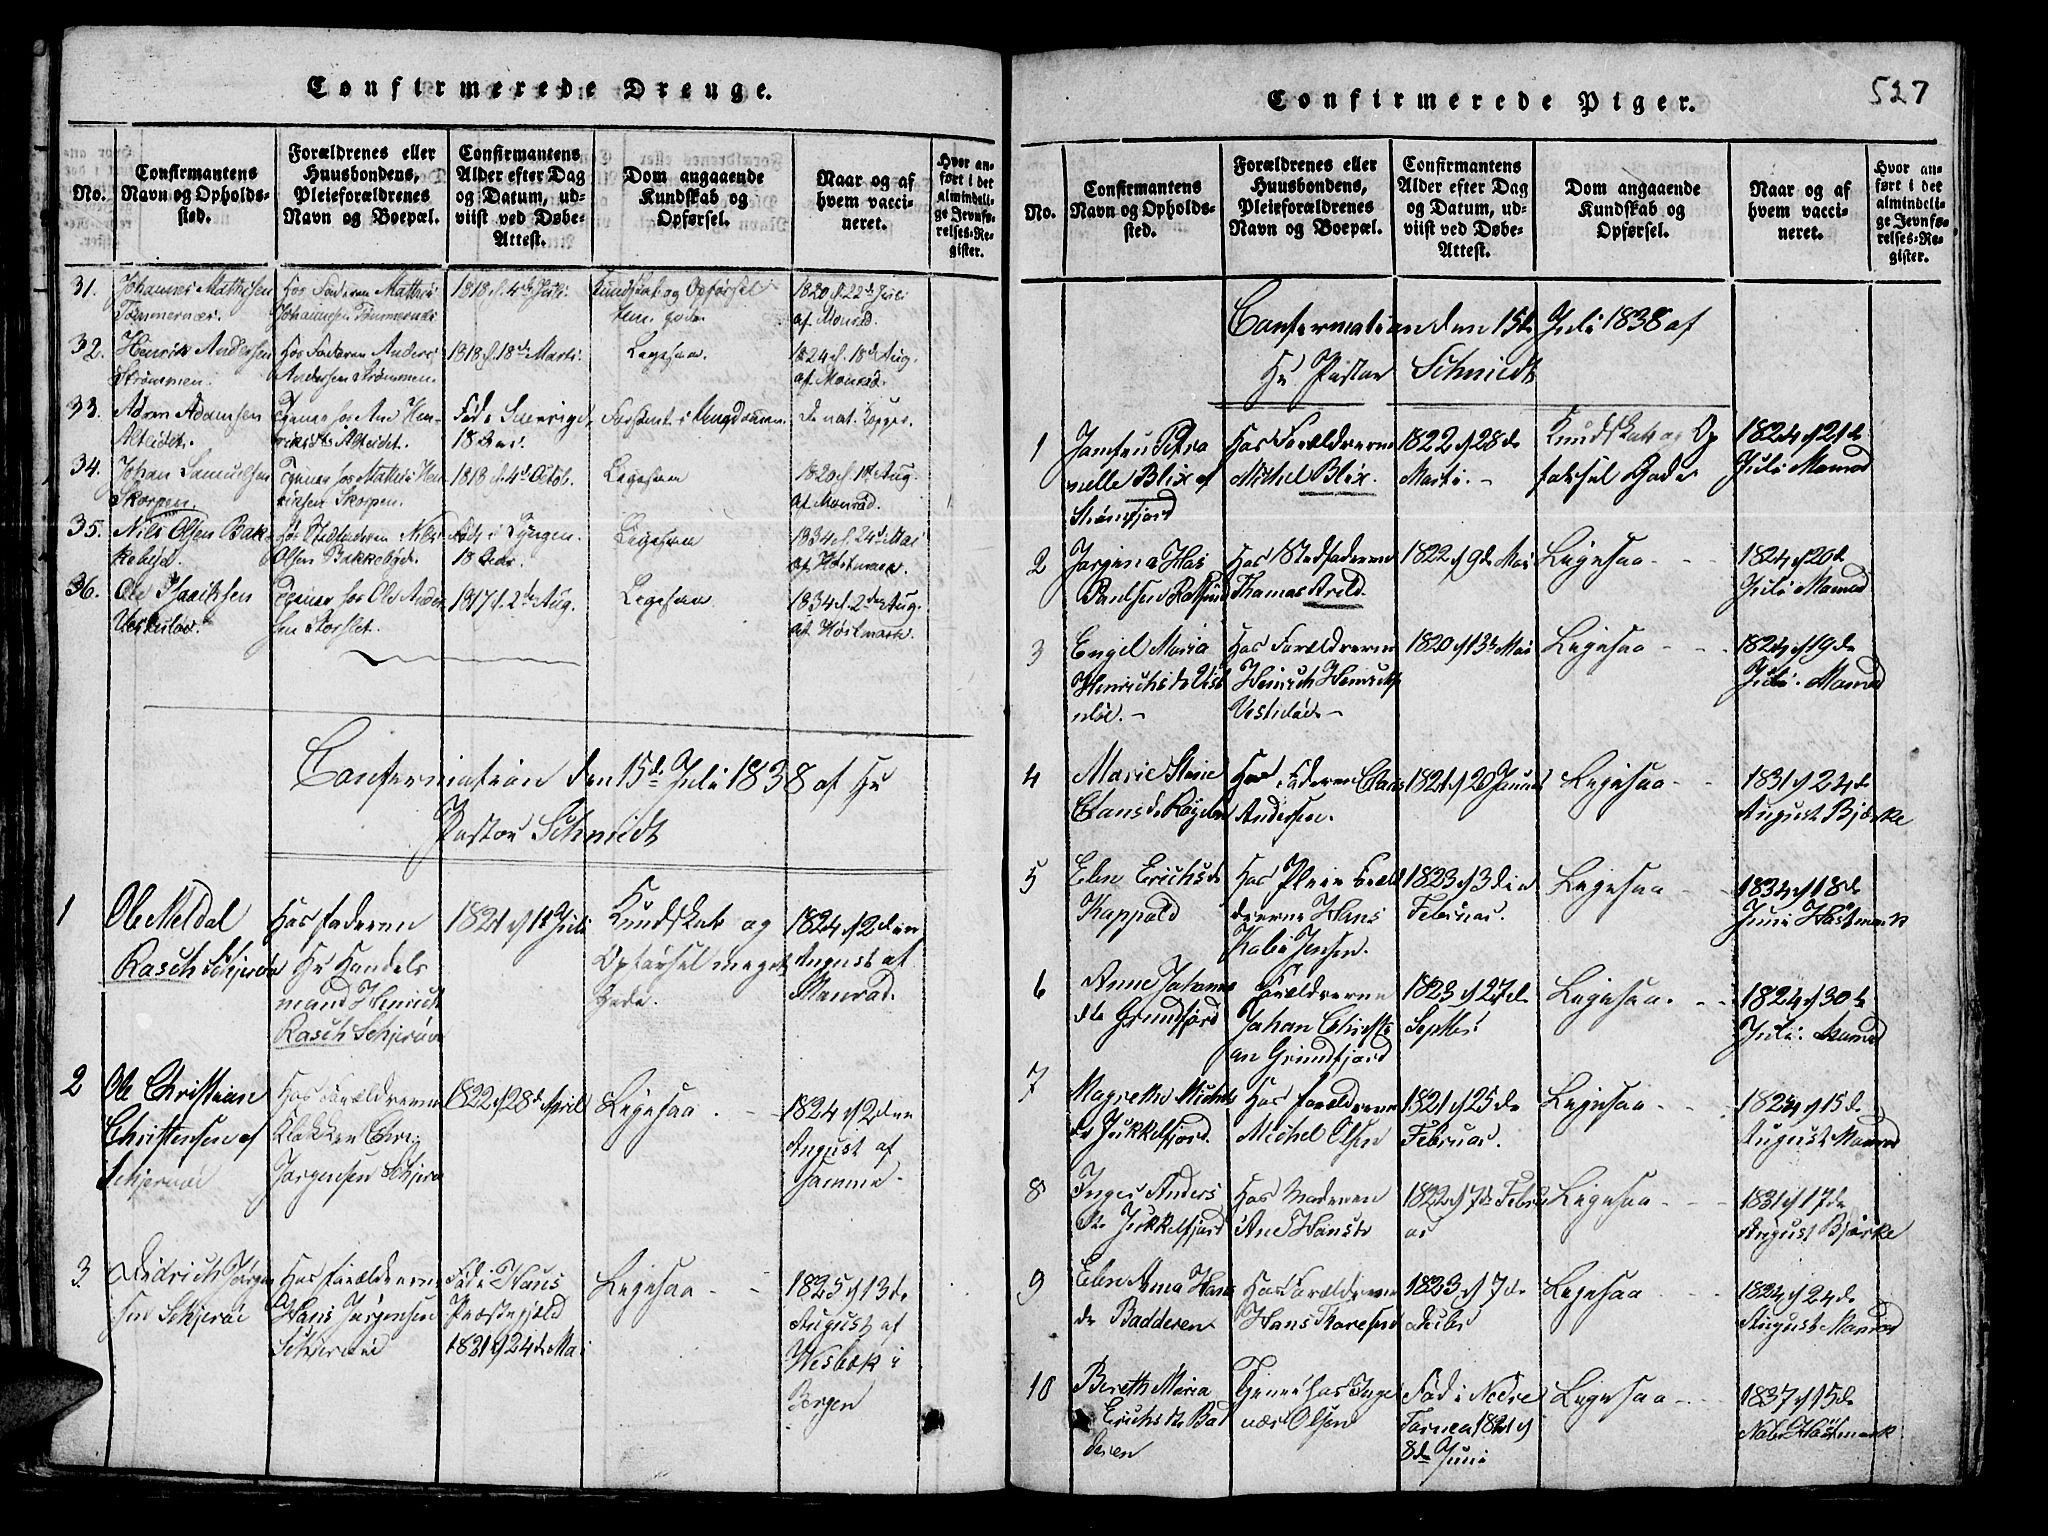 Confirmerede Drenge.
No.
Confirmantens
Navn og Opholds-
sted.
Forældrenes eller
Huusbondens,
Pleieforældrenes
Navn og Boepæl.
Confirmantens
Alder efter Dag
og Datum, ud-
viist ved Døbe-
Attest.
Dom angaaende
Kundskab og
Opførsel.
Naar og af
hvem vacci-
neret.
Hvor an-
ført i det
almindeli-
ge Jevnfø-
relses-Re-
gister.
31.
Johannes Mathisen
Hos Faderen Mathis
Johannesen
1818 d. 4de
Kundskab og Opførsel
1820 d. 22de Juli
af Monrad.
32.
Henrik Andersen
Strømmen.
Hos Faderen Anders
Andersen Strømmen.
1818 d. 18de Marts.
Ligesaa.
1824 d. 18de Aug.
af Monrad.
33.
Adam Adamsen
Alteidet.
Tjener hos
Alteidet.
Fød i Sverrige,
18 Aar.
de nat. Kopper.
34.
Johan Samuelsen
Skorpen.
Tjener hos Mathis Hen-
riksen Skorpen.
1818 d. 4de Octob.
Ligesaa
1820 d. 1st Aug.
af Monrad.
35.
Nils Olsen Bak-
kebye.
Hos Stedfaderen Nils
Olsen
Fød i Lyngen.
18 Aar.
Ligesaa
1834 d. 24de Mai
af Høstmark.
36.
Ole
Tjener hos Ole Ander-
sen Storslet.
1817 d. 2den Aug.
Ligesaa
1834 d. 2den Aug.
af Høstmark.
Confirmation den 15de Juli 1838 af Hr
Pastor Schmidt
1
Ole Meldal
Rasch Schjervøe
Hos faderen
Hr Handels
mand Henrich
Rasch Schjervøe
1821 d 11 Juli
Kundskab og
Opførsel meget
Gode.
1824 d 2den
August af
Monrad.
2
Ole Christian
Christensen af
Schjervøe
Hos Forældrerne
Klokker Chri
Jørgensen Schjerv
1822 d 28de April
Ligesaa. -
1824 d 2den
August af
Samme.
3.
Didrich Jørgen
sen Schjervøe
Hos forældrerne
Hans Jørgensen
Schjervøe
Fød i Haus
Præstegjæld
1821 d 24de Mai
Ligesaa - -
1825 d 13de
August af
Wesbæk i
Bergen
Confirmerede Piger.
527
No.
Confirmantens
Navn og Opholds-
sted.
Forældrenes eller
Huusbondens,
Pleieforældrenes
Navn og Boepæl.
Confirmantens
Alder efter Dag
og Datum, ud-
viist ved Døbe-
Attest.
Dom angaaende
Kundskab og
Opførsel.
Naar og af
hvem vacci-
neret.
Hvor an-
ført i det
almindeli-
ge Jevnfø-
relses-Re-
gister.
Confirmation den 15de Juli 1838 af
Hr Pastor Schmidt
1
Petro
nelle Blix af
Hos Forældrerne
Michel Blix.
1822 d 28de
Marts. -
Kundskab og Op
førsel Gode
1824 d 21de
Juli Monrad
2
Paulsen
Hos Stedfaderen
Thomas Arild.
1822 d 9de Mai
Ligesaa - -
1824 d 20de
Juli Monrad
3
Engel Maria
Henrichsdr
Hos Forældrerne
Heinrich Henrichs
1820 d 13de Mai
Ligesaa - -
1824 d 19de
Juli. Monrad
4
Marie Stine
Clausdr
Hos Faderen Claus
Andersen.
1821 d 20 Januar
Ligesaa - -
1831 d 24de
August Bjærke
5
Elen Erichsdr
Kappald
Hos Pleie Foræl
drerne Hans
Jensen.
1823 d 3die
Februar.
Ligesaa - -
1834 d 18de
Juni Høstmark
6
Anne Johannes
dtr Grundfjord
Forældrerne
Johan Christi
an Grundfjord
1823 d 27de
Septbr
Ligesaa. - -
1824 d 30te
Juli. Monrad
7
Magrethe Michels
dr Jukkelfjord.
Hos forældrerne
Michel Olsen
1821 d 25de
Februar.
Ligesaa - -
1824 d 15de
August Monrad
8
Inger Anders
dtr Jukkelfjord
Hos Moderen
Ane Hansdr
1822 d 17de Febru
ar
Ligesaa - -
1831 d 17de
August Bjærke
9
Elen Anna Hans
dr Badderen
Hos Forældrerne
Hans
1823 d 7de
Ligesaa
1824 d 24de
August Monrad
10
Bereth Maria
Erichsdtr Bad
deren
Tjener hos Inge
vær Olsen
Fød i Nedre
Tornea 1821 d
8de Juni
Ligesaa - - -
1837 d 15de
Novbr Høstmark